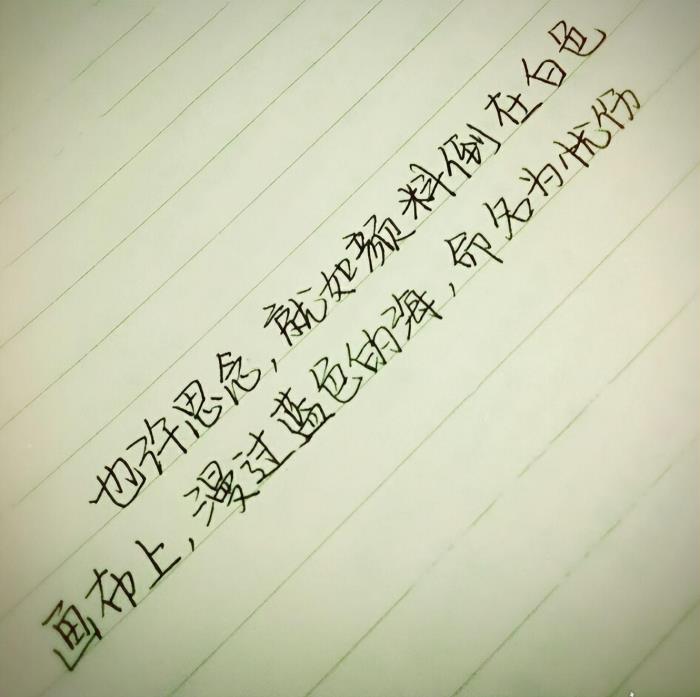 也许思念，就如颜料倒在白色
画布上，漫过蓝色的海，命名为忧伤